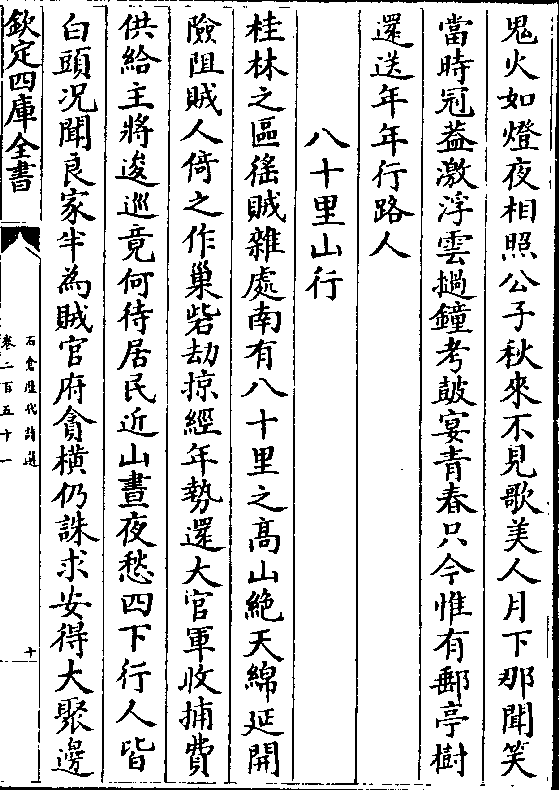 鬼火如燈夜相照公子秋來不見歌美人月下那聞笑
當時冠葢激浮雲撾鐘考皷宴青春只今惟有郵亭樹
還送年年行路人
八十里山行
桂林之區徭賊雜處南有八十里之髙山絶天綿延開
險阻賊人倚之作巢砦劫掠經年勢還大官軍收捕費
供給主將逡巡竟何待居民近山晝夜愁四下行人皆
白頭况聞良家半為賊官府貪橫仍誅求安得大聚邊
欽定四庫全書
石倉歷代詩選
卷二百五十一
十